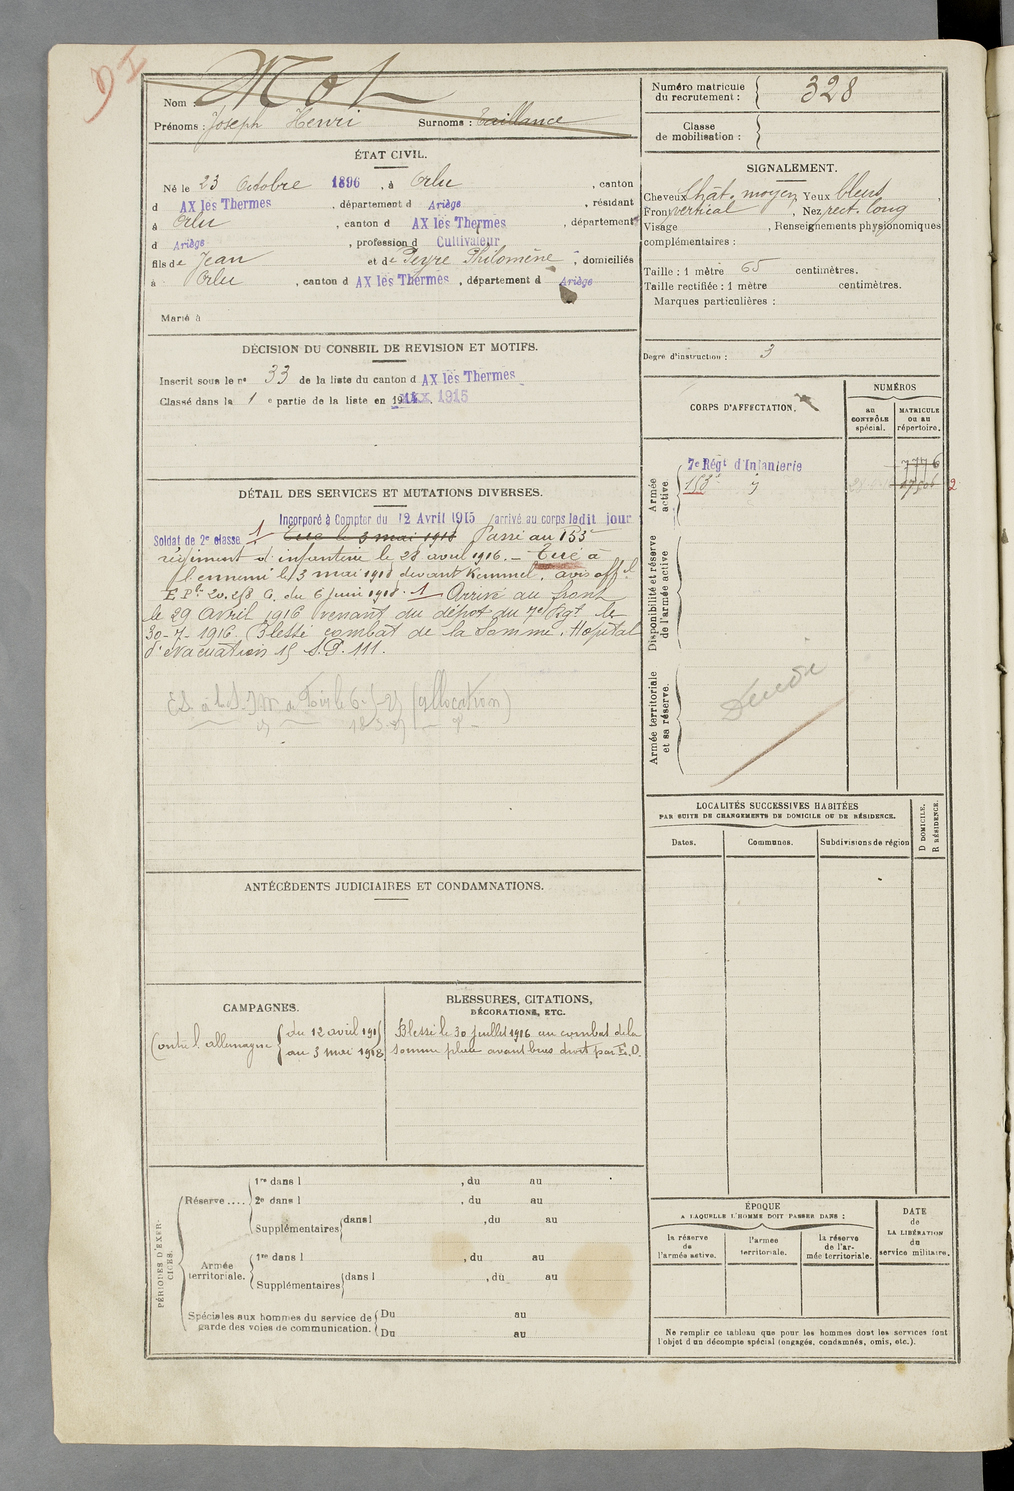 Nom : Mot
Prénoms : Joseph Henri Surnoms : Taillance
Numéro matricule du recrutement : 328
Classe de mobilisation :
ÉTAT CIVIL.
Né le 23 Octobre 1896, à Orlu, canton
d AX les Thermes, département d Ariège, résidant
à Orlu, canton d AX les Thermes, département
d Ariège, profession d Cultivateur
fils de Jean et de Peyre Philomène, domiciliés
à Orlu, canton d AX les Thermes, département d Ariège
Marié à
SIGNALEMENT.
Cheveux chât. moyen Yeux bleus,
Front vertical, Nez rect. long
Visage , Renseignements physionomiques
complémentaires :
Taille : 1 mètre 65 centimètres.
Taille rectifiée : 1 mètre centimètres.
Marques particulières :
Degré d'instruction : 3
DÉCISION DU CONSEIL DE REVISION ET MOTIFS.
Inscrit sous le n° 33 de la liste du canton d AX les Thermes
Classé dans la 1 e partie de la liste en 1915
CORPS D'AFFECTATION.
NUMÉROS
au CONTRÔLE spécial.
MATRICULE ou au répertoire.
Armée active.
7e Régt d'Infanterie 7776
153e
2
Disponibilité et réserve de l'armée active.
Armée territoriale et sa réserve.
DÉTAIL DES SERVICES ET MUTATIONS DIVERSES.
Incorporé à Compter du 12 Avril 1915 arrivé au corps ledit jour
Soldat de 2e classe 1 Tué le 3 mai 1918 Passé au 153e
régiment d'infanterie le 28 avril 1916. – Tué à
l'ennemi le 3 mai 1918 devant Kemmel, avis offel
E Pls 20.258 G. du 6 juin 1918. 1 Arrivé au front
le 29 avril 1916 venant du dépôt du 7e Rgt le
30-7-1916. Blessé combat de la Somme. Hopital
d'évacuation 15 S.P. 111.
(allocation)
ANTÉCÉDENTS JUDICIAIRES ET CONDAMNATIONS.
LOCALITÉS SUCCESSIVES HABITÉES
PAR SUITE DE CHANGEMENTS DE DOMICILE OU DE RÉSIDENCE.
Dates.
Communes.
Subdivisions de région
D DOMICILE, R RÉSIDENCE.
CAMPAGNES.
Contre l'allemagne du 12 avril 1915
au 3 mai 1918
BLESSURES, CITATIONS,
DÉCORATIONS, ETC.
Blessé le 30 juillet 1916 au combat de la
Somme plaie avant bras droit par E.O.
PÉRIODES D'EXERCICES.
Réserve ....
1re dans l , du au
2e dans l , du au
Supplémentaires dans l , du au
Armée territoriale.
1re dans l , du au
Supplémentaires dans l , du au
Spéciales aux hommes du service de garde des voies de communication.
Du au
Du au
ÉPOQUE
A LAQUELLE L'HOMME DOIT PASSER DANS :
la réserve de l'armée active.
l'armée territoriale.
la réserve de l'armée territoriale.
DATE de LA LIBÉRATION du service militaire.
Ne remplir ce tableau que pour les hommes dont les services font
l'objet d'un décompte spécial (engagés, condamnés, omis, etc.).